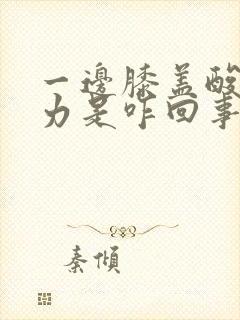 一邊膝盖酸
力是咋回事
秦傾